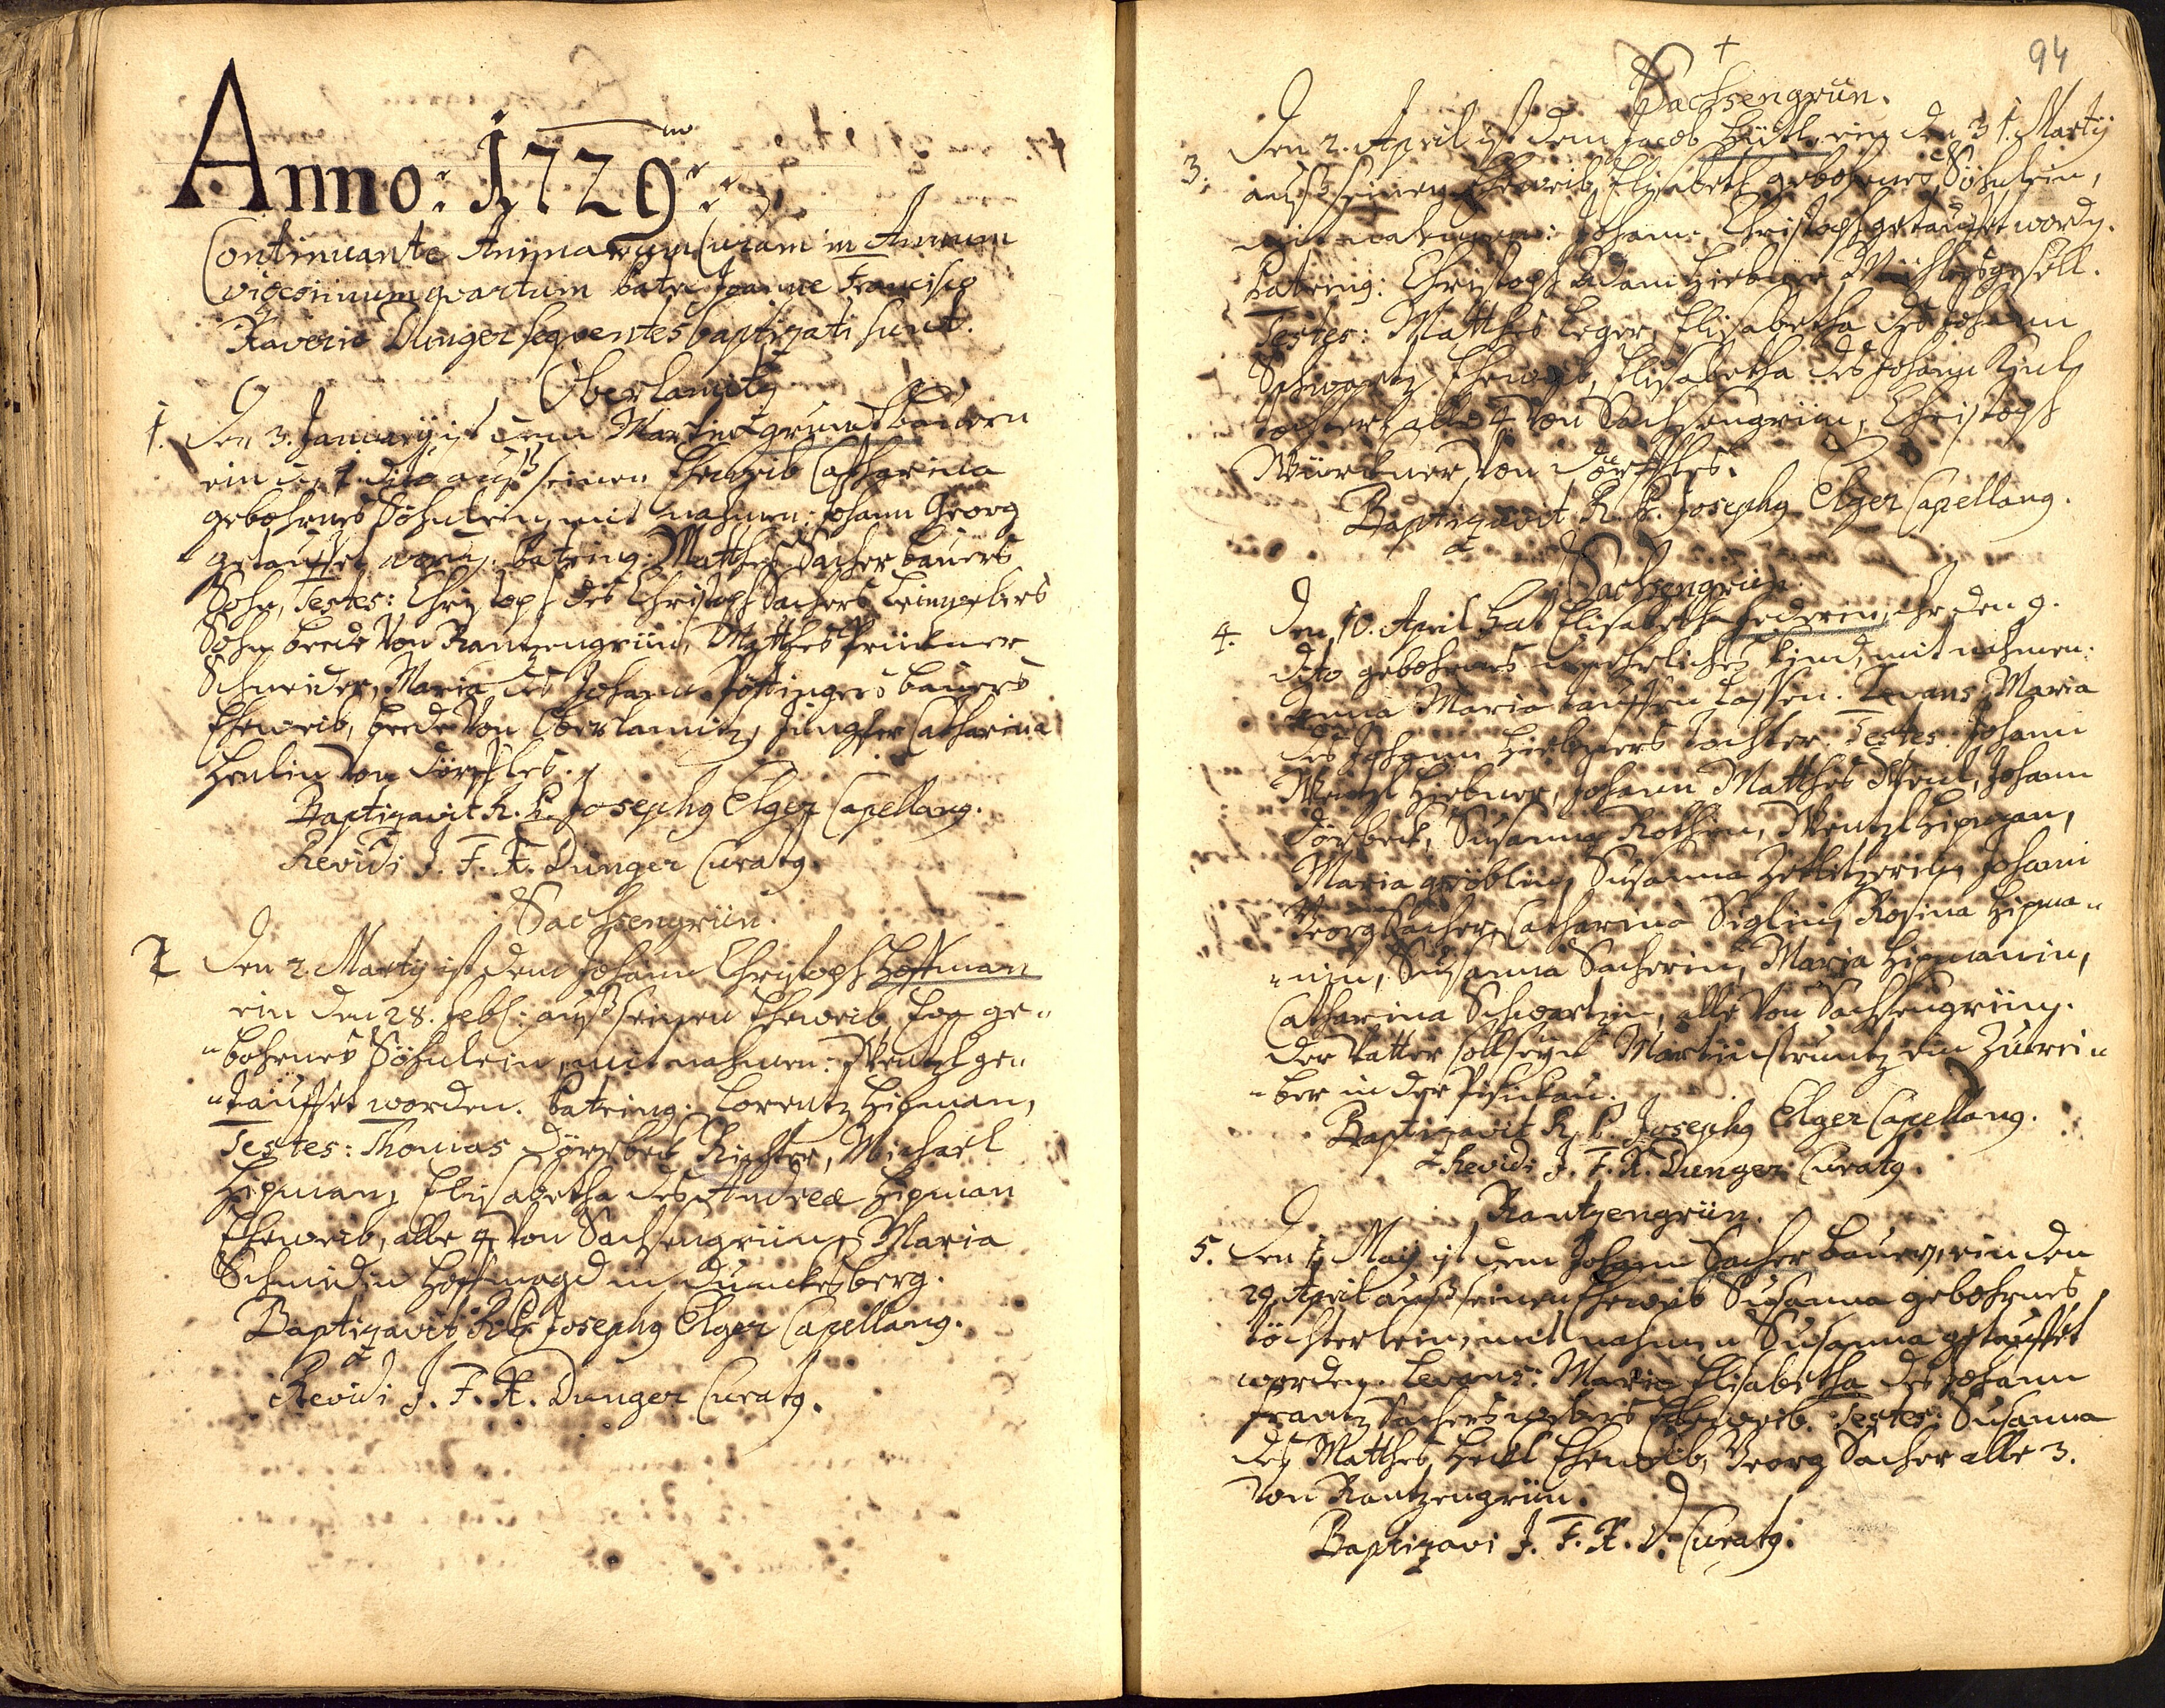 Anno: 1729no
Continuante Animarum Curam in Annum
vigesimum quartum Patre Joanne Francisco
Xaverio Dunger sequentes baptizati sunt.
Oberlamitz
1. Den 3. January ist dem Martin grundbauern
ein den 2. dito auß seinen Eheweib Catharina
gebohrnes Söhnlein mit nahmen: Johann Georg
getauffet word. Patrinus: Matthes Sacher bauers
Sohn, Testes: Christoph des Christoph Sachers
Sohn beede von Rantzengrün, Matthes
Schneider, Maria des Johann Pöttingers bauers
Eheweib, beede von Oberlamitz, Jungfer Catharina
Henlin von Dörffles.
Baptizavit R. P. Josephus Elger Capellanus.
Revidi J. F. X. Dunger Curatus.
Sachsengrün.
2 Den 2. Marty ist dem Johann Christoph Hoffman
ein den 28. Feb: auß seinen Eheweib Eva ge„
„bohrnes Söhnlein, mit nahmen: Wentzl ge„
„tauffet worden. Patrinus: Lorentz Hipman,
Testes: Thomas Dörrbeck Richter, Michael
Hipman, Elisabetha des Andreæ Hipman
Eheweib, alle 4 von Sachsengrün, Maria
Schmidin Hoffmagd in Dunckelsberg.
Baptizavit R. P. Josephus Elger Capellanus.
Revidi J. F. X. Dunger Curatus.
94
Sachsengrün.
3. Den 2. April ist dem Jacob Hüttl ein den 31. Marty
auß seinen Eheweib Elisabeth gebohrnes Söhnlein,
mit nahmen: Johann Christoph getauffet wordn.
Patrinus: Christoph Adam Hiebner Mühlersgesöll.
Testes: Matthes Leger, Elisabetha des Johann
Schwartz Eheweib, Elisabetha des Johann
tochter alle 4 von Sachsengrün, Christoph
Würckner von Dörffles.
Baptizavit R. P. Josephus Elger Capellanus.
Sachsengrün.
4. Den 10. April hat Elisabetha Federin, ihr den 9.
dito gebohrnes unehrliches Kind, mit nahmen:
Anna Maria tauffen lassen. Levans Maria
des Johann Hiebners tochter. Testes: Johann
Wentzl Hiebner, Johann Matthes Weul, Johann
Dörrbeck, Susanna Rothin, Wentzl Hipman,
Maria gröblin, Susanna Zettlitzerin, Johann
Georg Sacher, Catharina Siglin, Rosina Hipma„
„nin, Susanna Sacherin, Maria Hipmanin,
Catharina Schwartzin, alle von Sachsengrün.
Der Vatter soll seyn Martin ein
„ber in der
Baptizavit R. P. Josephus Elger Capellanus.
Revidi J. F. X. Dunger Curatus.
Rantzengrün.
5. Den 1 May ist dem Johann Sacher bauern, ein den
29. April auß seinen Eheweib Susanna gebohrnes
töchterlein, mit nahmen Susanna getauffet
worden. Levans: Maria Elisabetha des Johann
Frantz Sachers webers Eheweib. Testes: Susanna
des Matthes Heckl Eheweib, Georg Sacher alle 3.
von Rantzengrün.
Baptizavi J. F. X. D. Curatus.